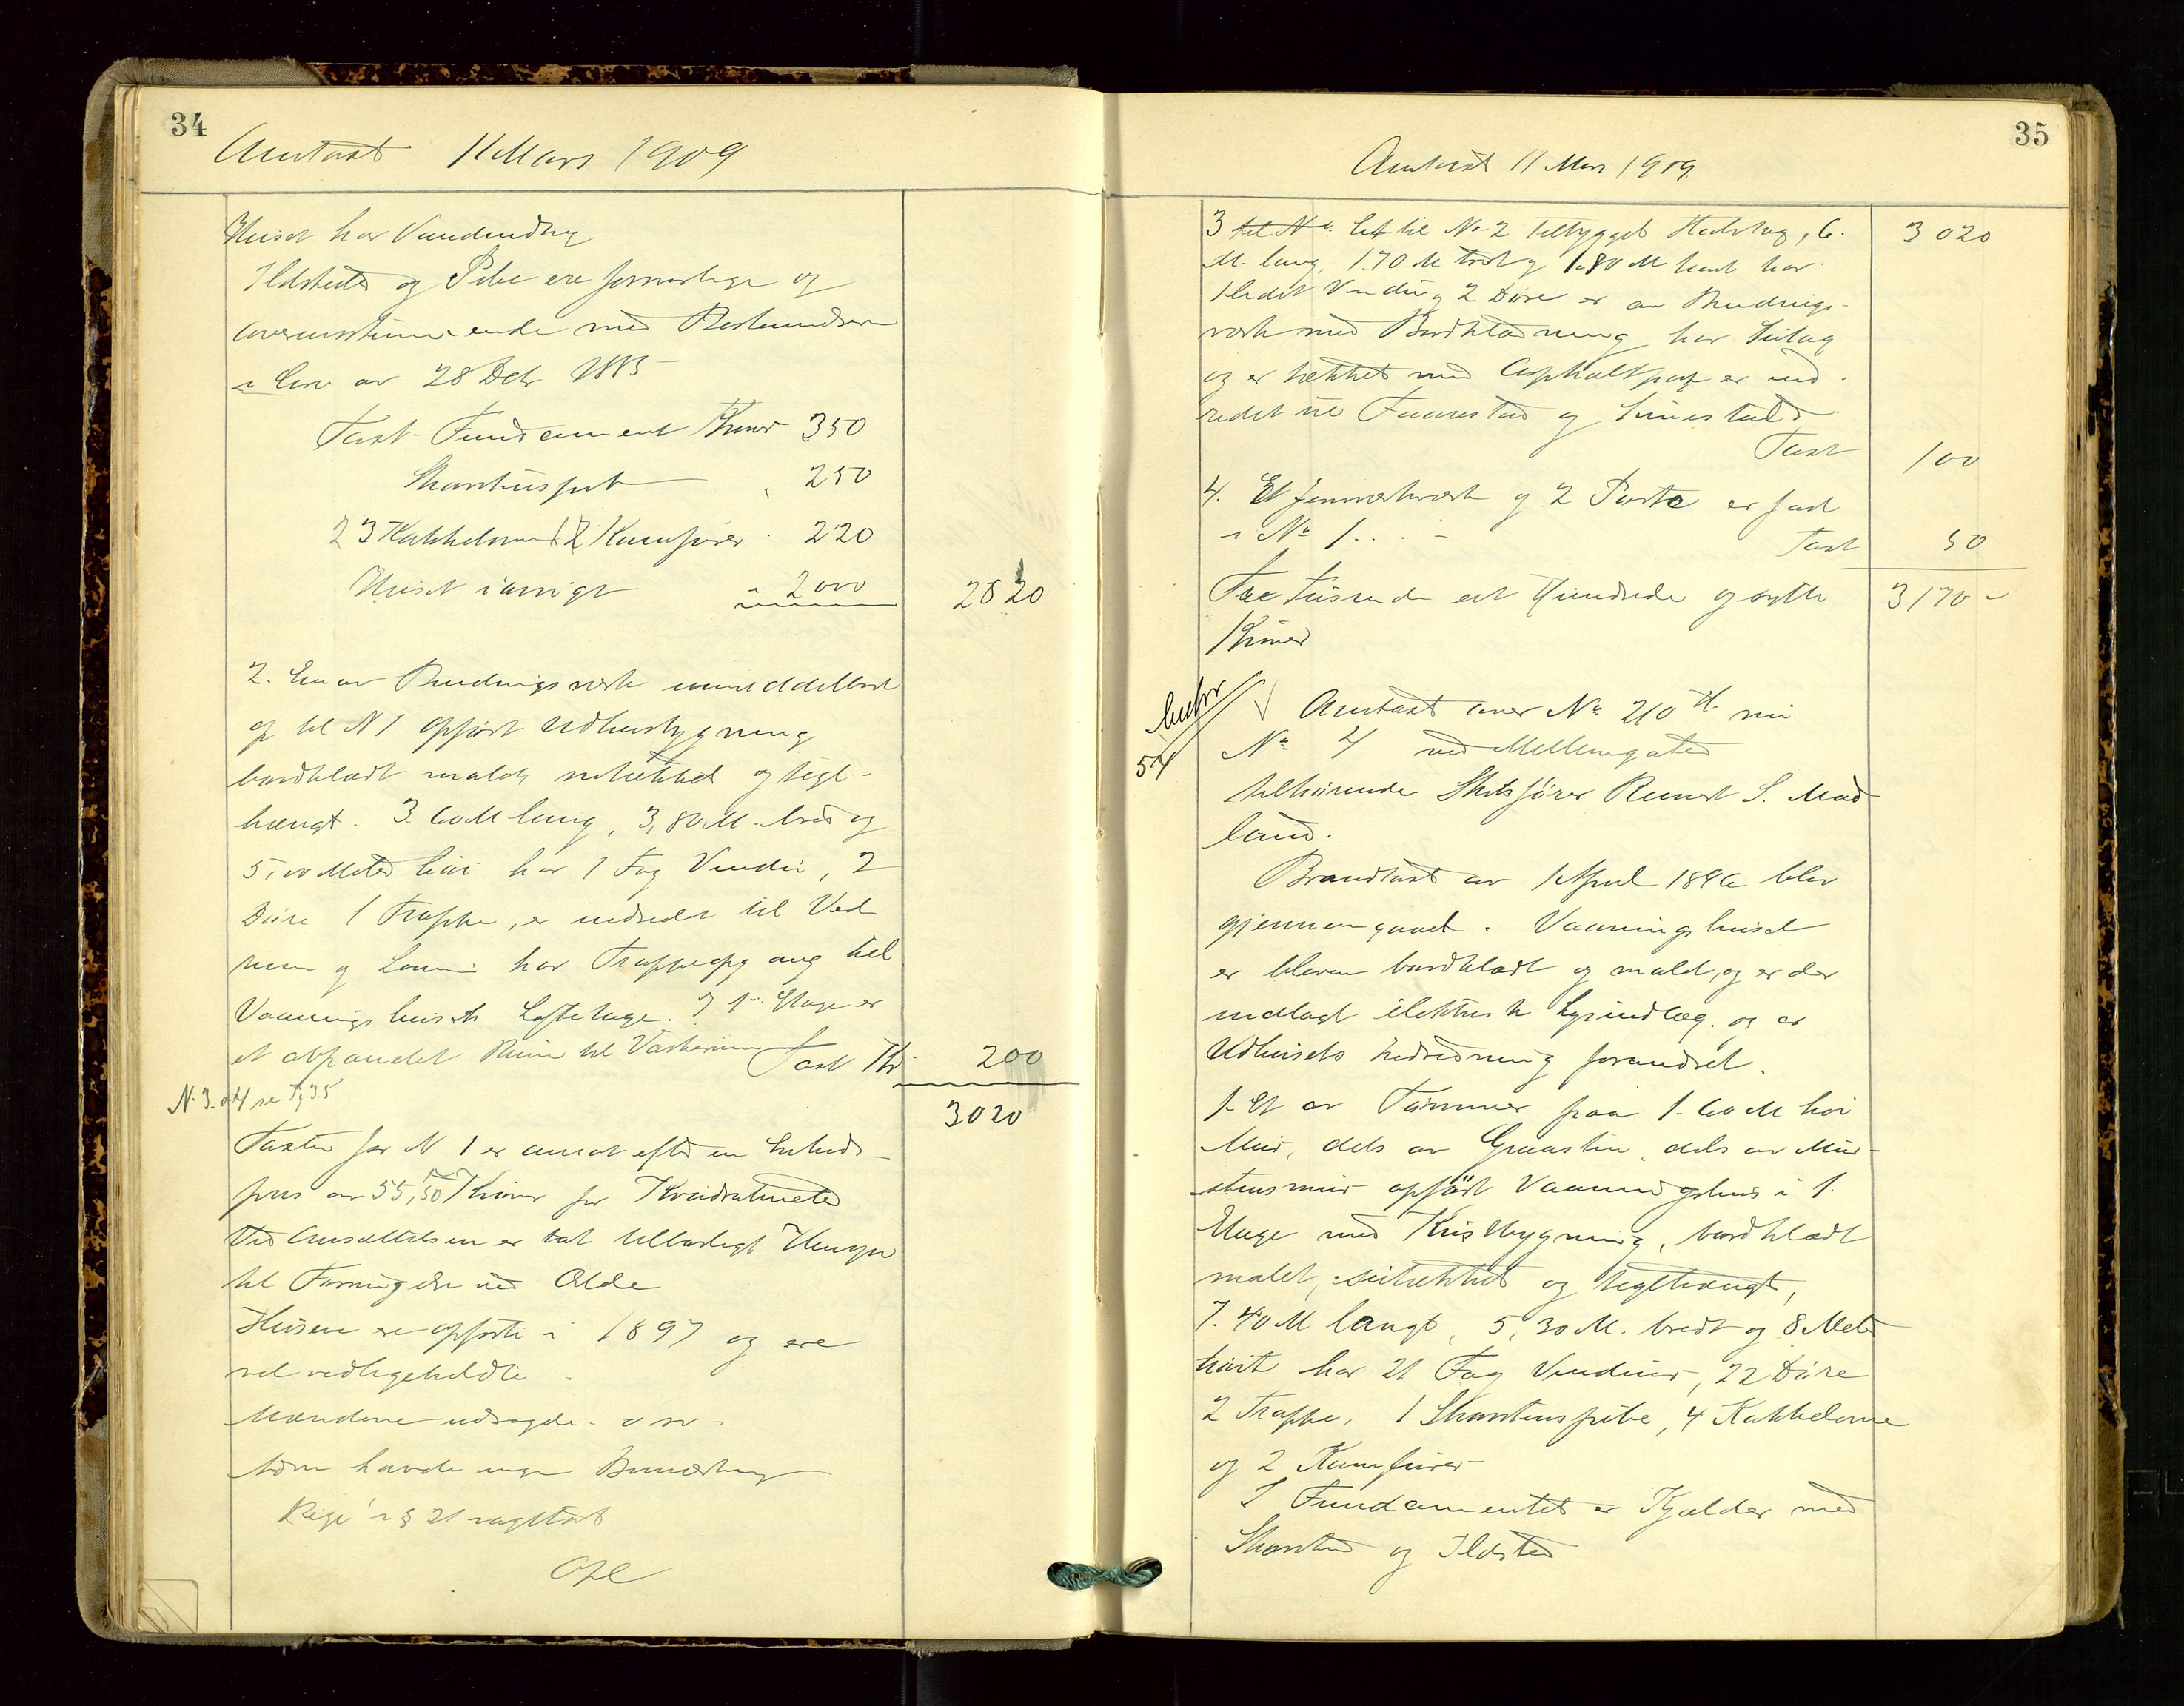 34
Omtaxt 11 Mars 1909
Huset har Vandindlæg
Ildsteder og Pibe ere forsvarlige og
overensstemmende med Bestemmelsen
i Lov av 28 Debr 1885
Taxt - Fundament Kroner 350
Skorstenspibe " 250
3 Kakkelovne 2 Komfurer " 220
Huset iøvrigt " 2000 2820
2. En av Bindingsværk umiddelbart
op til N 1 opført Udhusbygning
bordklædt malet sutækket og tegl-
hængt. 3.60 M lang, 3,80 M. bred og
5,00 Meter høi har 1 Fag Vindu, 2
Døre 1 Trappe, er indredet til Ved
rum og har Trappeopgang til
Vaaningshusets Loftetage. I 1ste Etage er
et afpanelet Rum til Vaskerum Taxt Kr 200
N. 3. og 4 se Pg 35
3020
Taxten for N 1 er ansat efter en Enheds-
pris av 55,50 Kroner pr Kvadratmeter
Ved Ansættelsen er tat tilbørligt Hensyn
til Forringelse ved Ælde
Husene ere opførte i 1897 og ere
vel vedligeholdte.
Mændene udsagde - o sv -
som havde ingen Bemærkning
§ 21 vagttat
35
Omtaxt 11 Mars 1909.
3 Et til No 2 tilbygget Halvtag, 6.
M. lang, 1.70 M bred og 1.80 M høit har
1 lidet Vindu og 2 Døre er av Bindings-
værk med Bordklædning har Sutag
og er tækket med Asphaltpap er ind-
redet til Faarestad og
Taxt 100
3020
4. Et Jernrækverk og 2 Porte er sat
i No 1. . . - Taxt 50
Tre Tusende et Hundrede og sytti 3170 -
Kroner
54
Omtaxt over No 210 H. nu
No 4 ved Mellemgaten
tilhørende Skibsfører Reinert S. Mad
land.
Brandtaxt av 1 April 1896 blev
gjennemgaaet. Vaaningshuset
er bleven bordklædt og malet, og er der
indlagt elektrisk Lysindlæg. og er
Udhusets Indredning forandret.
1. Et av Tømmer paa 1.60 M høi
Mur, dels av Graasten, dels av Mur-
stensmur opført Vaaningshus i 1.
Etage med Kvistbygning, bordklædt
malet, sutækket og teglhængt,
7.40 M langt, 5,30 M. bredt og 8 Meter
høit har 21 Fag Vinduer, 22 Døre
2 Trapper, 1 Skorstenspibe, 4 Kakkelovne
og 2 Komfurer
I Fundamentet er Kjælder med
Skorsten og Ildsted